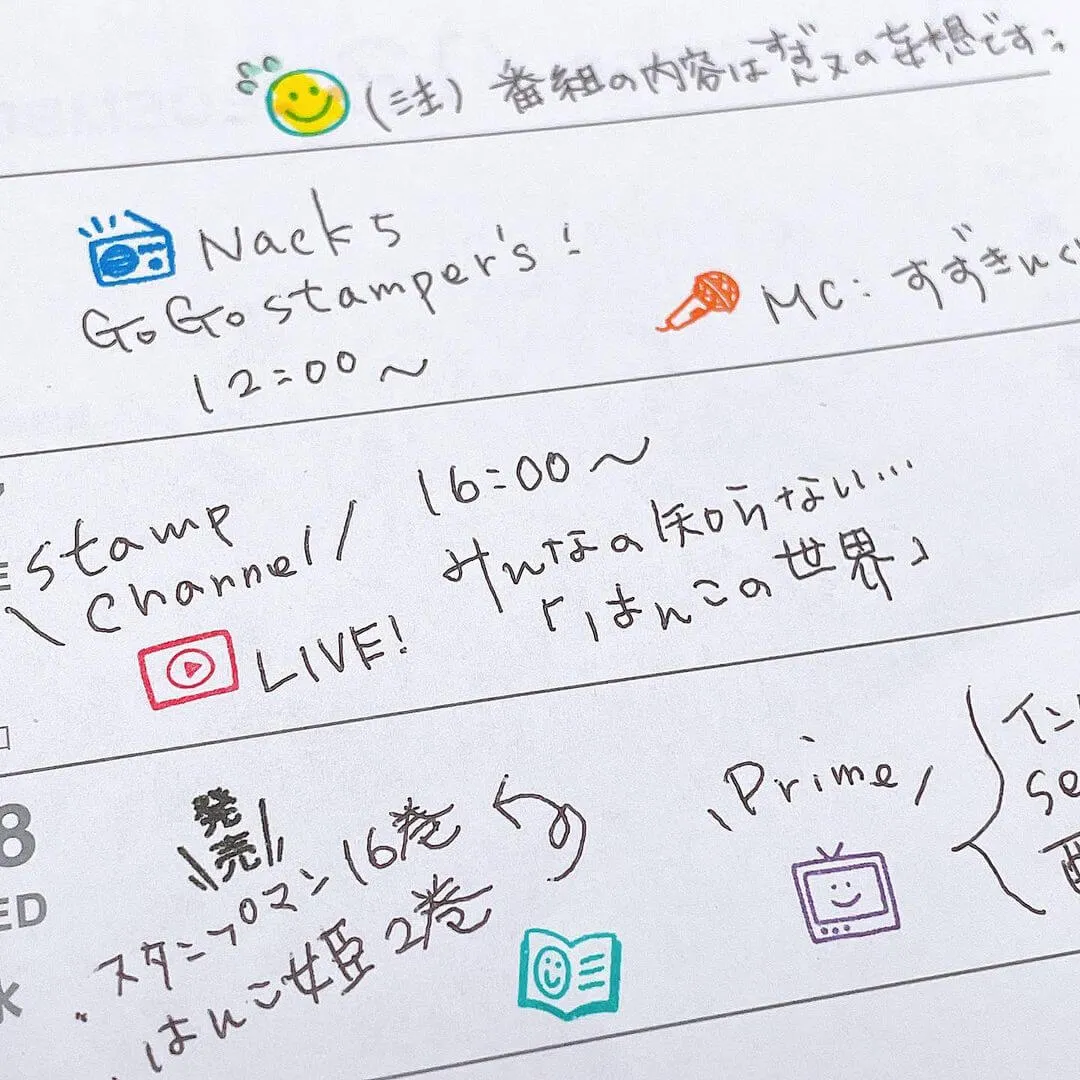 (注) 番組の内容はすべての妄想です。
Nack5
GoGo stamper's!
12:00〜
MC: すずきんぐ
stamp
\ Channel /
LIVE!
16:00〜
みんなの知らない…
「はんこの世界」
8
ED
発売
・スタンプマン 16巻
・はんこ姫 2巻
\ Prime /
イン
se